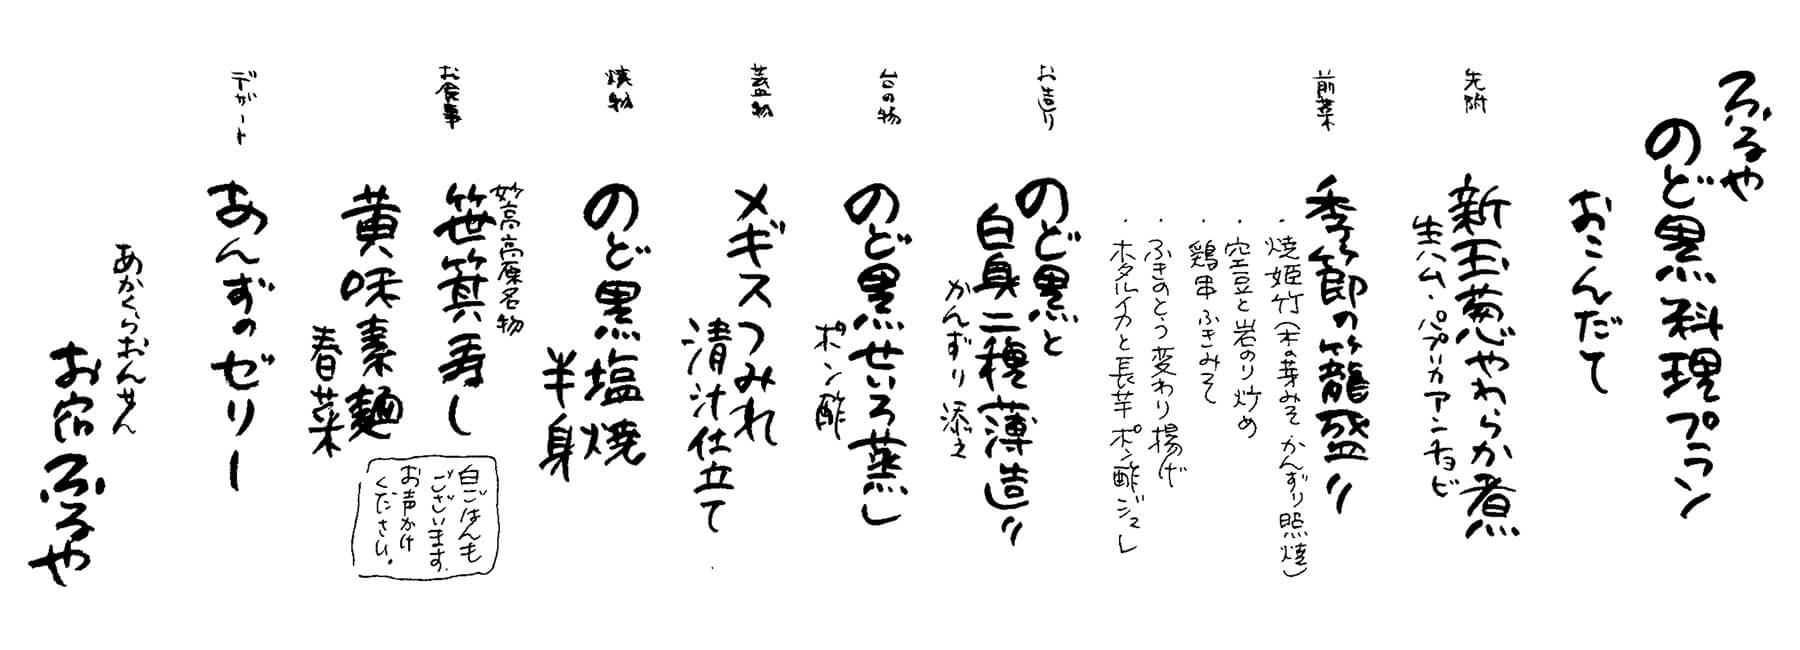 ふるや
のど黒料理プラン
おこんだて
先附
新玉葱やわらか煮
生ハム・パプリカアンチョビ
前菜
季節の籠盛り
・焼姫竹(木の芽みそ かんずり照焼)
・空豆と岩のり炒め
・鶏串ふきみそ
・ふきのとう変わり揚げ
・ホタルイカと長芋ポン酢ジュレ
お造り
のど黒と
白身二種薄造り
かんずり添え
台の物
のど黒せいろ蒸し
ポン酢
蓋物
メギスつみれ
清汁仕立て
焼物
のど黒塩焼
半身
お食事
妙高高原名物
笹箕寿し
黄味素麺
春菜
白ごはんも
ございます。
お声かけ
ください。
デザート
あんずのゼリー
あかくらおんせん
お宿ふるや